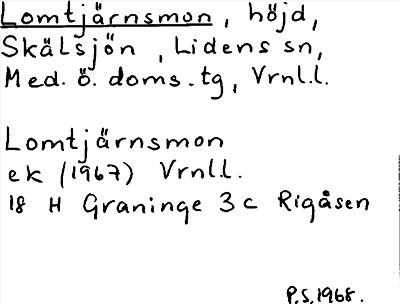 Lomtjärnsmon, höjd,
Skälsjön, Lidens sn,
Med. ö. doms.tg, Vrnl.l.
Lomtjärnsmon
ek (1967) Vrnl.l.
18 H Graninge 3 c Rigåsen
P.S. 1968.